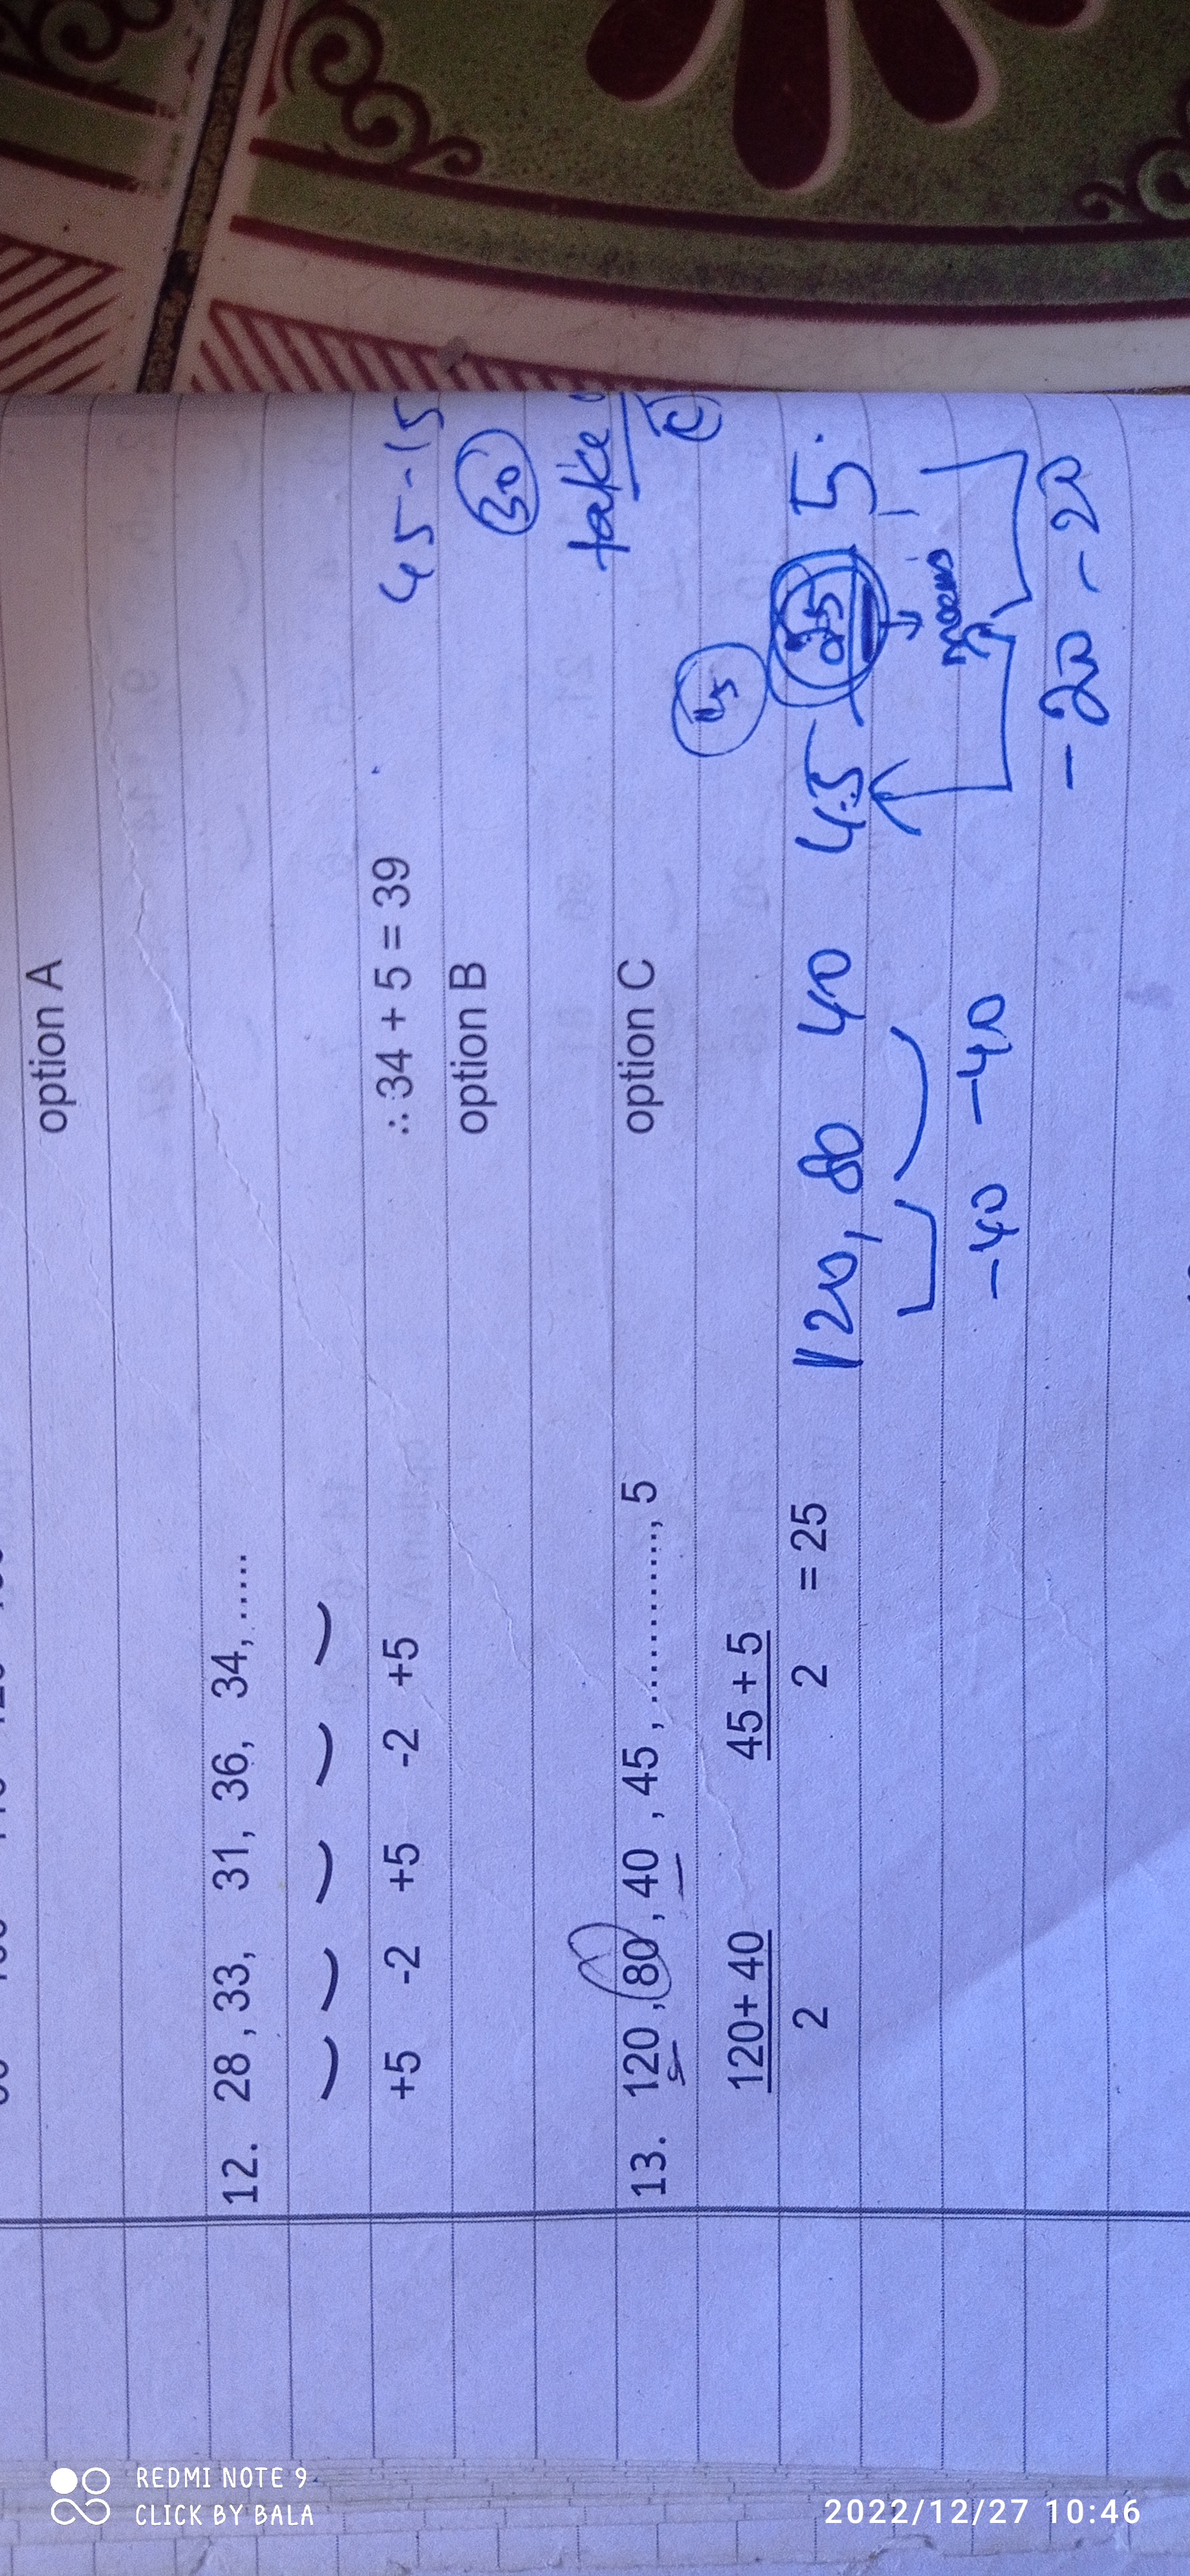 option A
12. 28 , 33, 31, 36, 34, .....
+5 -2 +5 -2 +5 ∴ 34 + 5 = 39 45 - 15
option B 30
take
13. 120 , 80 , 40 , 45 , ............., 5 option C
120+ 40 45 + 5
2 2 = 25
120, 80 40 45 25 5.
-40 -40
-20 -20
REDMI NOTE 9
CLICK BY BALA
2022/12/27 10:46